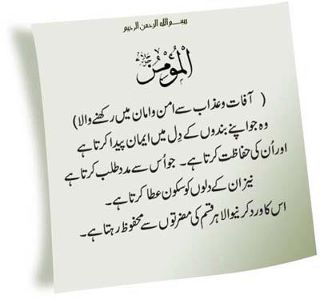 بسم الله الرحمن الرحيم
اَلْمُؤْمِنُ جل جلالہ
( آفات و عذاب سے امن و امان میں رکھنے والا )
وہ جو اپنے بندوں کے دِل میں ایمان پیدا کرتا ہے
اور اُن کی حفاظت کرتا ہے۔ جو اُس سے مدد طلب کرتا ہے
نیز ان کے دلوں کو سکون عطا کرتا ہے۔
اس کا ورد کرنیوالا ہر قسم کی مضرتوں سے محفوظ رہتا ہے۔